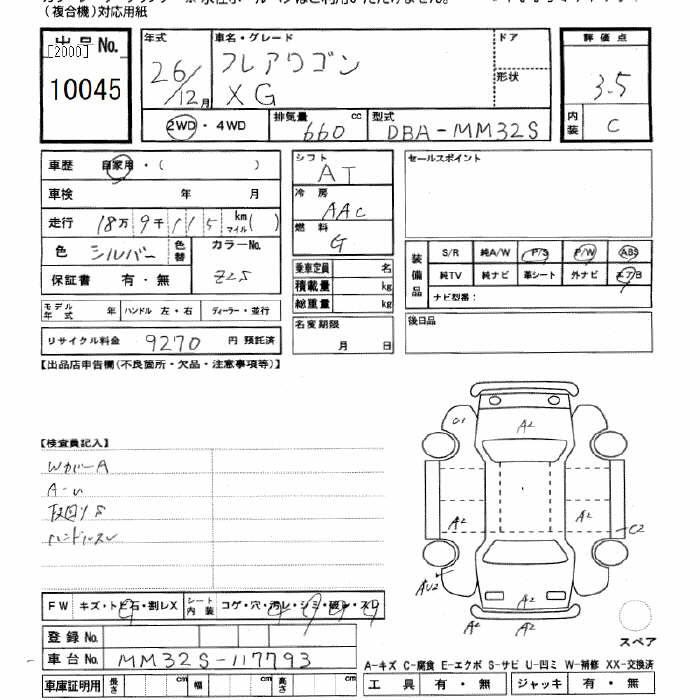 (複合機)対応用紙
出品No.
[2000]
10045
年式
26/12月
車名・グレード
フレアワゴン
XG
ドア
形状
評価点
3.5
内装
C
2WD・4WD
排気量
660 cc
型式
DBA-MM32S
車歴
自家用・(　　　)
車検
年 月
走行
18万9千115 km
マイル( )
色
シルバー
色替
カラーNo.
Z2S
保証書
有・無
モデル年式
年
ハンドル 左・右
ディーラー・並行
リサイクル料金
9270 円 預託済
シフト
AT
冷房
AAC
燃料
G
乗車定員
名
積載量
kg
総重量
kg
名変期限
月 日
セールスポイント
装備品
S/R
純A/W
P/S
P/W
ABS
純TV
純ナビ
革シート
外ナビ
エアB
ナビ型番:
後日品
【出品店申告欄(不良箇所・欠品・注意事項等)】
【検査員記入】
WカバーA
A-U
ハンドルスレ
G1
A2
A2
A2
C2
AU2
A2
A2
A2
スペア
FW
キズ・トビ石・割レX
シート内装
コゲ・穴・汚レ・シミ・破レ・スレ
登録No.
車台No.
MM32S-117793
車庫証明用
長さ
cm
幅
cm
高さ
cm
A-キズ C-腐食 E-エクボ S-サビ U-凹ミ W-補修 XX-交換済
工具
有・無
ジャッキ
有・無